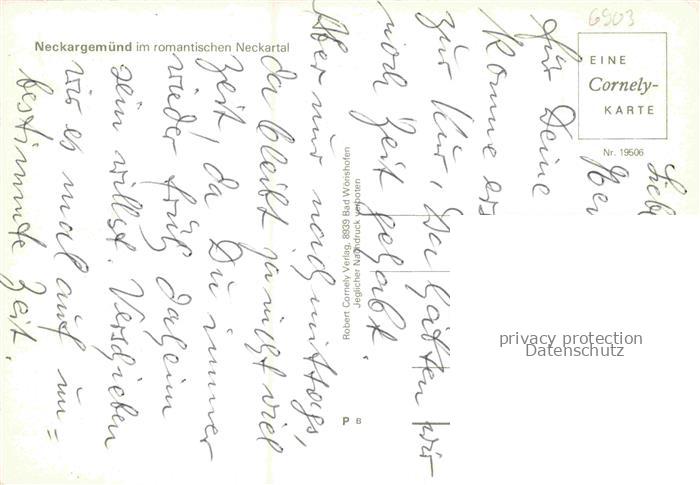 Neckargemünd im romantischen Neckartal
6903
EINE
Cornely-
KARTE
Nr. 19506
Robert Cornely Verlag, 8939 Bad Wörishofen
Jeglicher Nachdruck verboten
P B
privacy protection
Datenschutz
für Deine
komme er
zur Kur, da hätten wir
noch Zeit gehabt.
Aber nur nachmittags,
da bleibt ja nicht viel
Zeit, da Du immer
wieder früh daheim
sein willst. Verschieben
wir es mal auf un=
bestimmte Zeit.